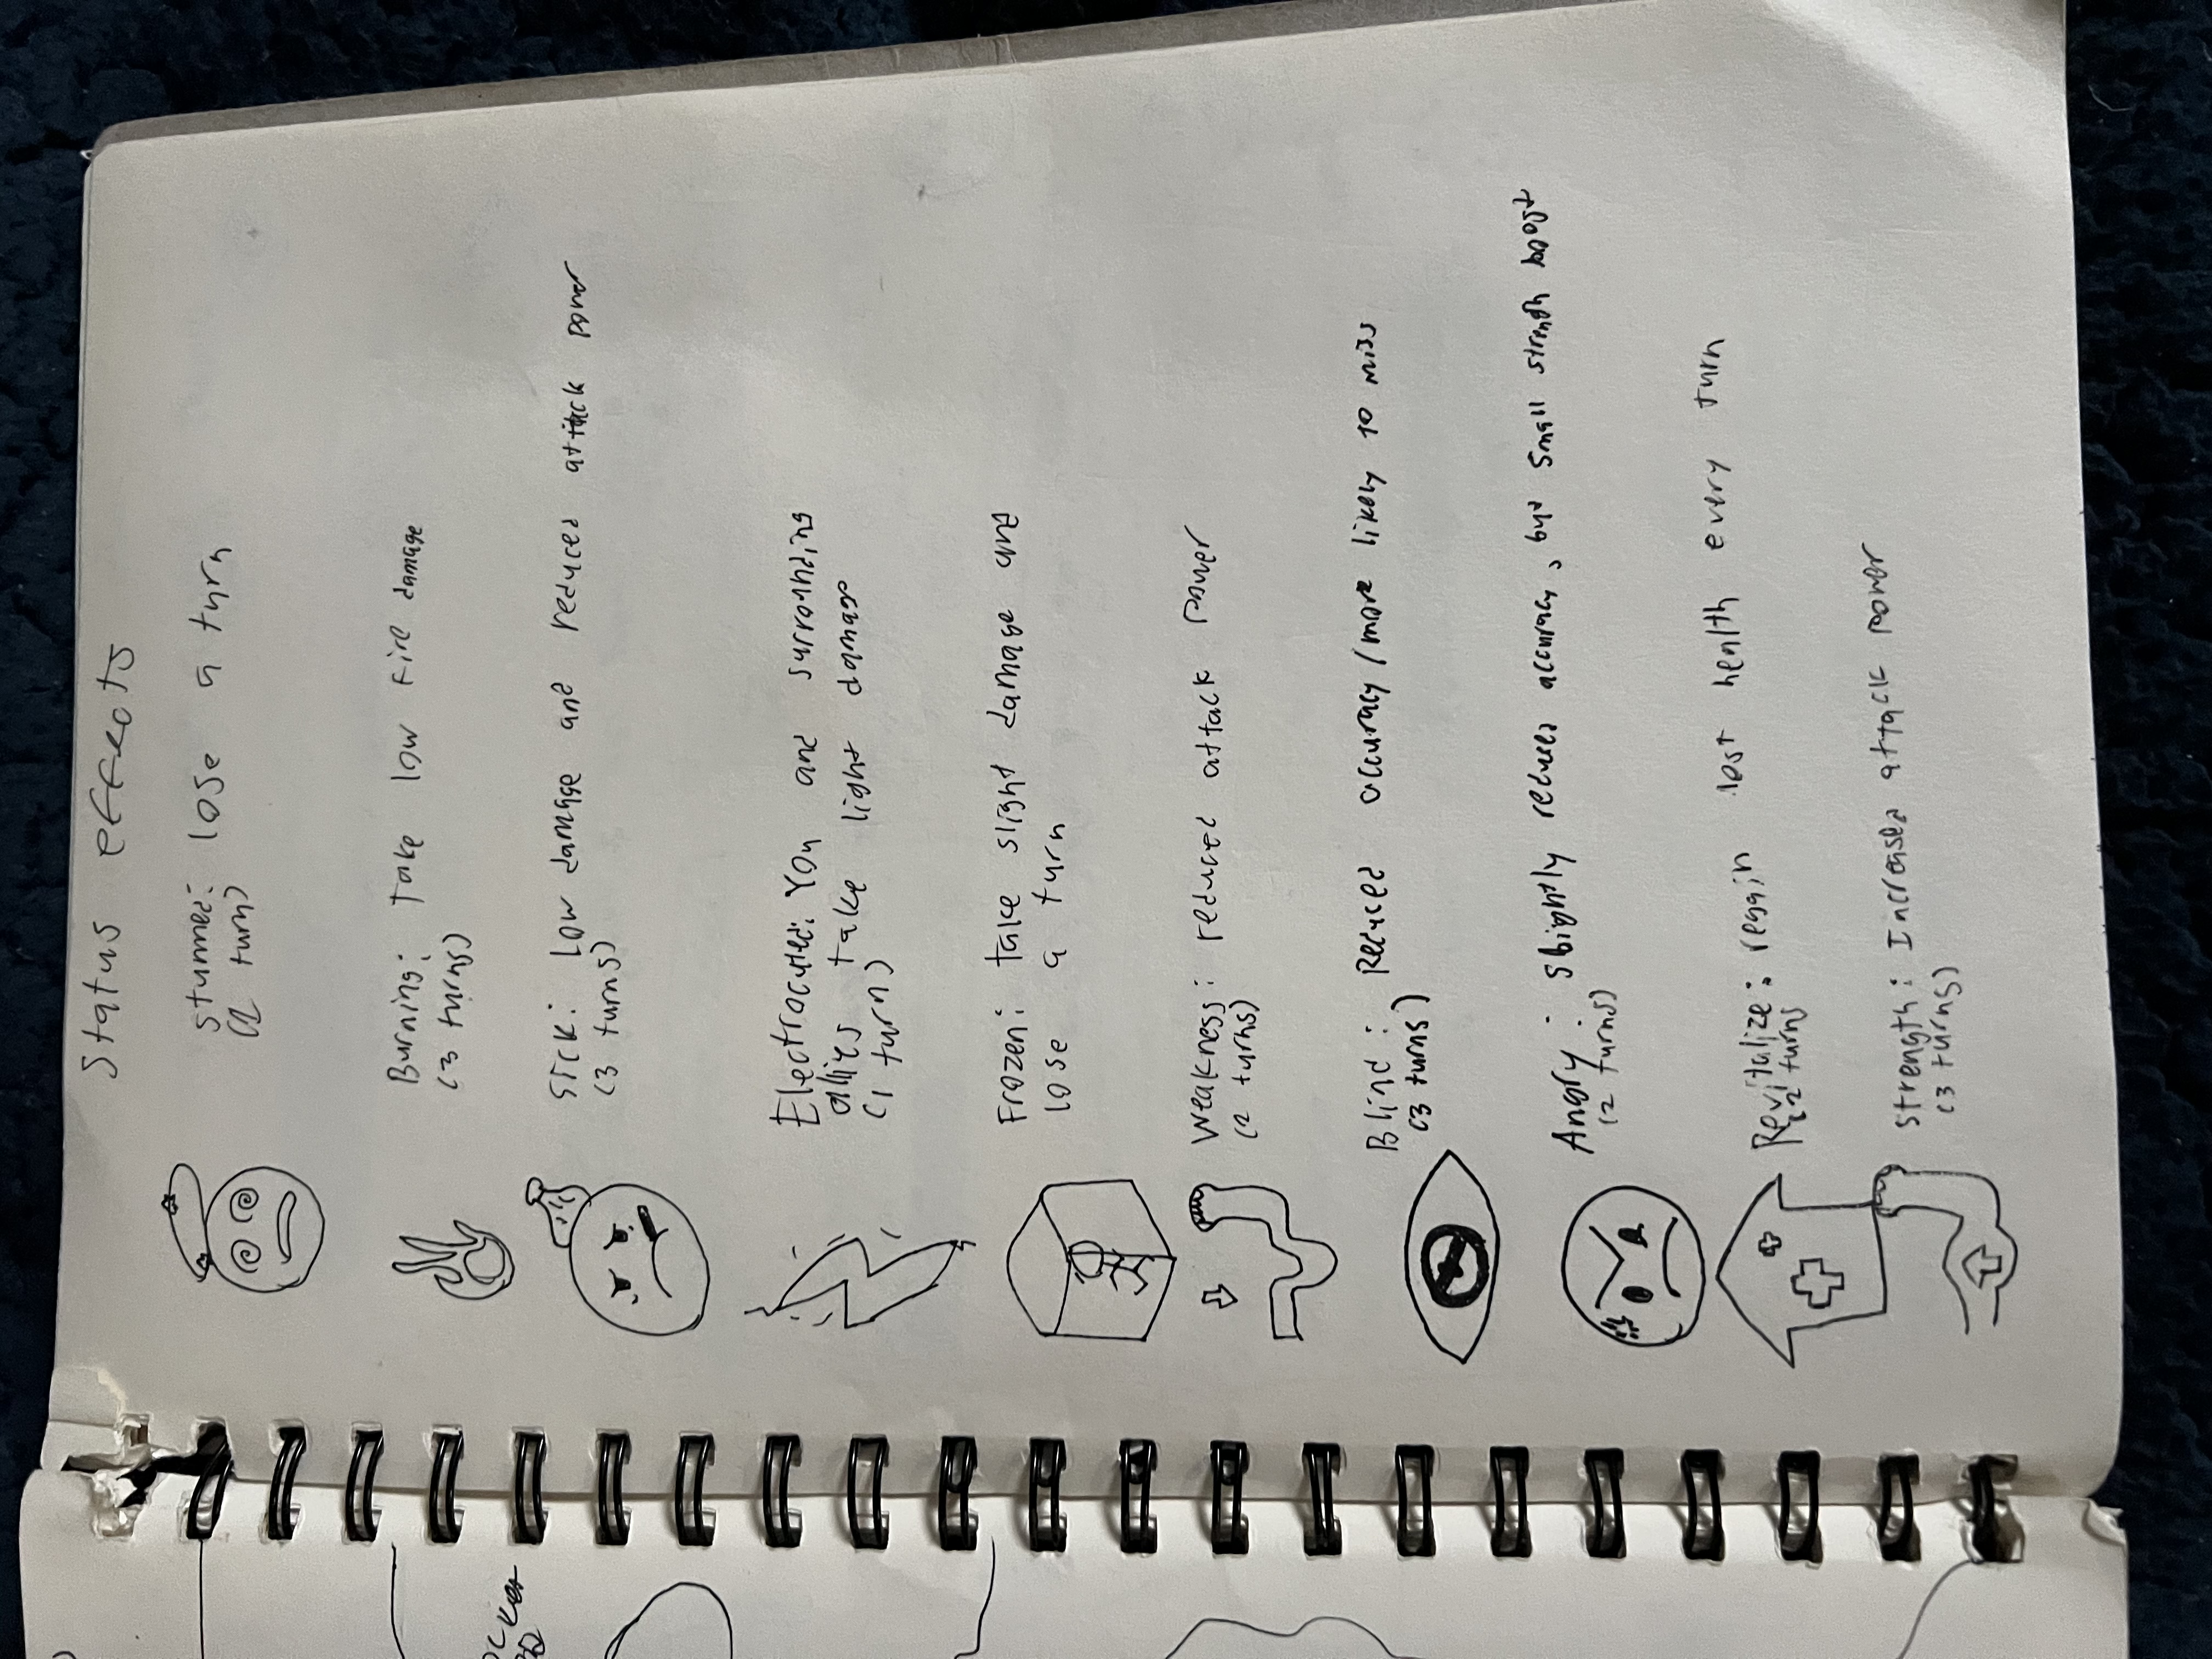 Status effects
stunned: lose a turn
(1 turn)
Burning: Take low fire damage
(3 turns)
Sick: Low damage and reduced attack power
(3 turns)
Electrocuted: You and surrounding
allies take light damage
(1 turn)
Frozen: take slight damage and
lose a turn
Weakness: reduced attack power
(2 turns)
Blind: Reduced accuracy/more likely to miss
(3 turns)
Angry: Slightly reduced accuracy, but small strength boost
(2 turns)
Revitalize: regain lost health every turn
(2 turns
Strength: Increased attack power
(3 turns)